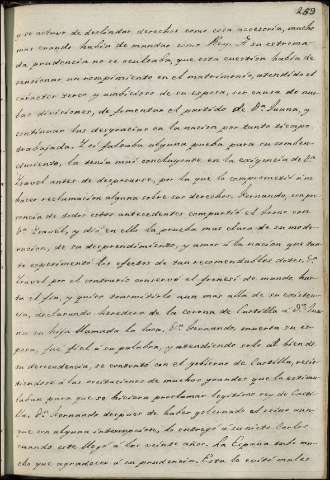 259
y se acuso de deslindar derechos como cosa accesoria, mucho
mas cuando habia de mandar como Rey. A su estrema-
da prudencia no se ocultaba, que esta cuestion habia de
ocasionar un rompimiento en el matrimonio, atendido el
carácter terco y ambicioso de su esposa, ser causa de nue-
bas divisiones, de fomentar el partido de Dª Juana, y
continuar las desgracias en la nacion por tanto tiempo
trabajada. Y si faltaba alguna prueba para su conben-
cimiento, la tenia mui concluyente en la exigencia de Dª
Isavel antes de desposarse, por la que le comprometió á no
hacer reclamacion alguna sobre sus derechos. Fernando, en pre-
sencia de todos estos antecedentes compartió el trono con
Dª Isavel, y dió en ello la prueba mas clara de su mode-
racion, de su desprendimiento, y amor á la nacion que tan-
to esperimentó los efectos de tan recomendables dotes. Dª
Isavel por el contrario conservó el frenesí de mando has-
ta el fin, y quiso trasmitirlo aun mas alla de su ecsisten-
cia, declarando heredera de la corona de Castilla á Dª Jua-
na su hija llamada la loca. Dn Fernando, muerta su es-
posa, fue fiel á su palabra, y atendiendo solo al bien de
su decendencia, se contentó con el gobierno de Castilla, resis-
tiendose á las escitaciones de muchos grandes que le estimu-
laban para que se hiciera proclamar legitimo rey de Casti-
lla. Dn Fernando despues de haber gobernado el reino aun-
que con alguna interrupcion, lo entregó á su nieto Carlos
cuando este llegó á los veinte años. La España tubo mu-
cho que agradecer á su prudencia. Esta le evitó males